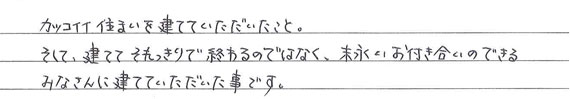 カッコイイ住まいを建てていただいたこと。
そして、建ててそれっきりで終わるのではなく、末永いお付き合いのできる
みなさんに建てていただいた事です。